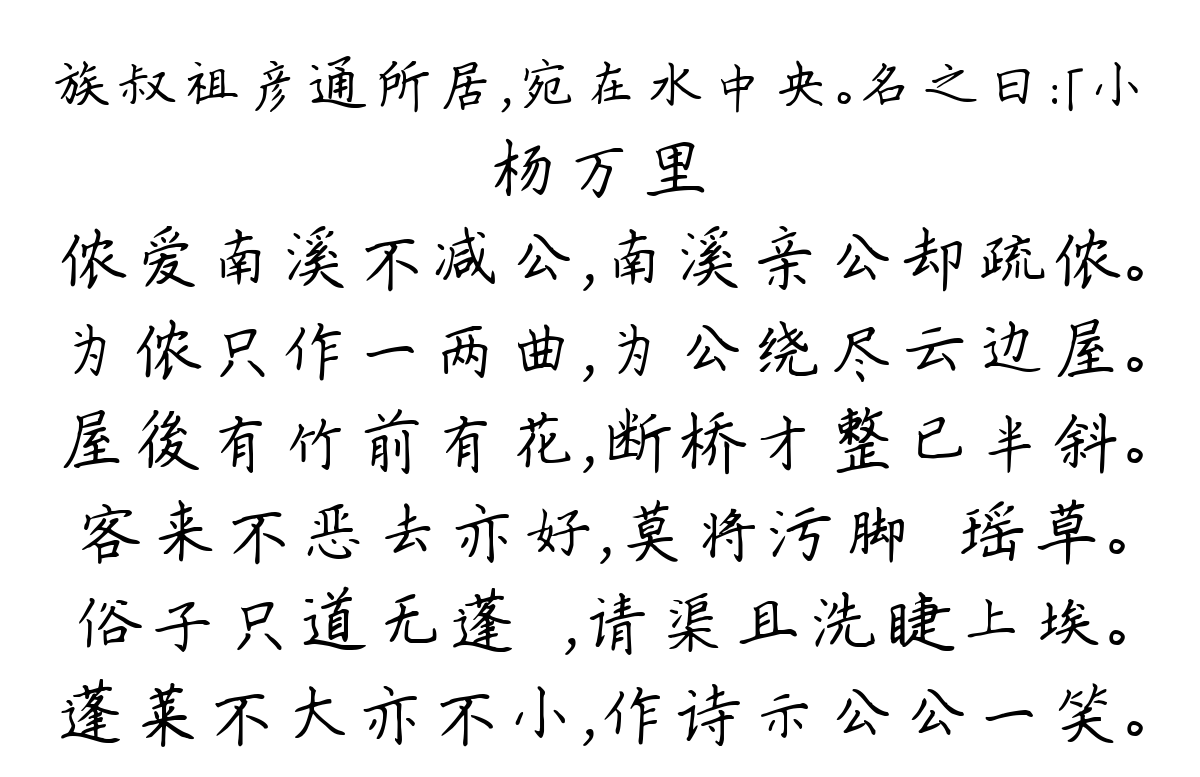 族叔祖彦通所居,宛在水中央。名之曰:「小
杨万里
侬爱南溪不减公,南溪亲公却疏侬。
为侬只作一两曲,为公绕尽云边屋。
屋後有竹前有花,断桥才整已半斜。
客来不恶去亦好,莫将污脚 瑶草。
俗子只道无蓬 ,请渠且洗睫上埃。
蓬莱不大亦不小,作诗示公公一笑。